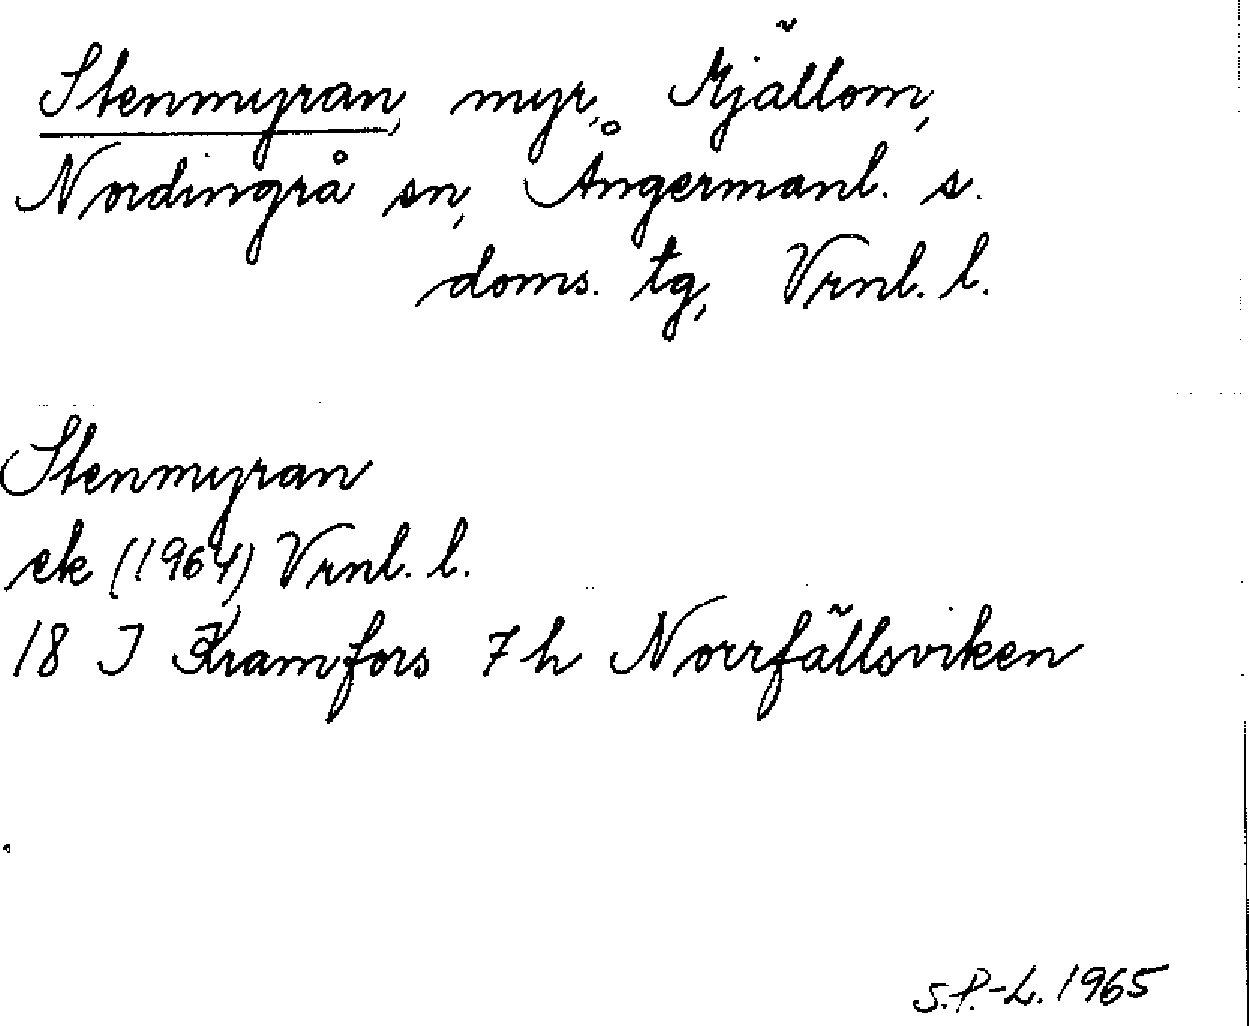 Stenmyran, myr, Mjällom,
Nordingrå sn, Ångermanl. s.
doms. tg, Vrnl. l.
Stenmyran
ek (1964) Vrnl. l.
18 J Kramfors 7 h Norrfällsviken
S.P.-L. 1965